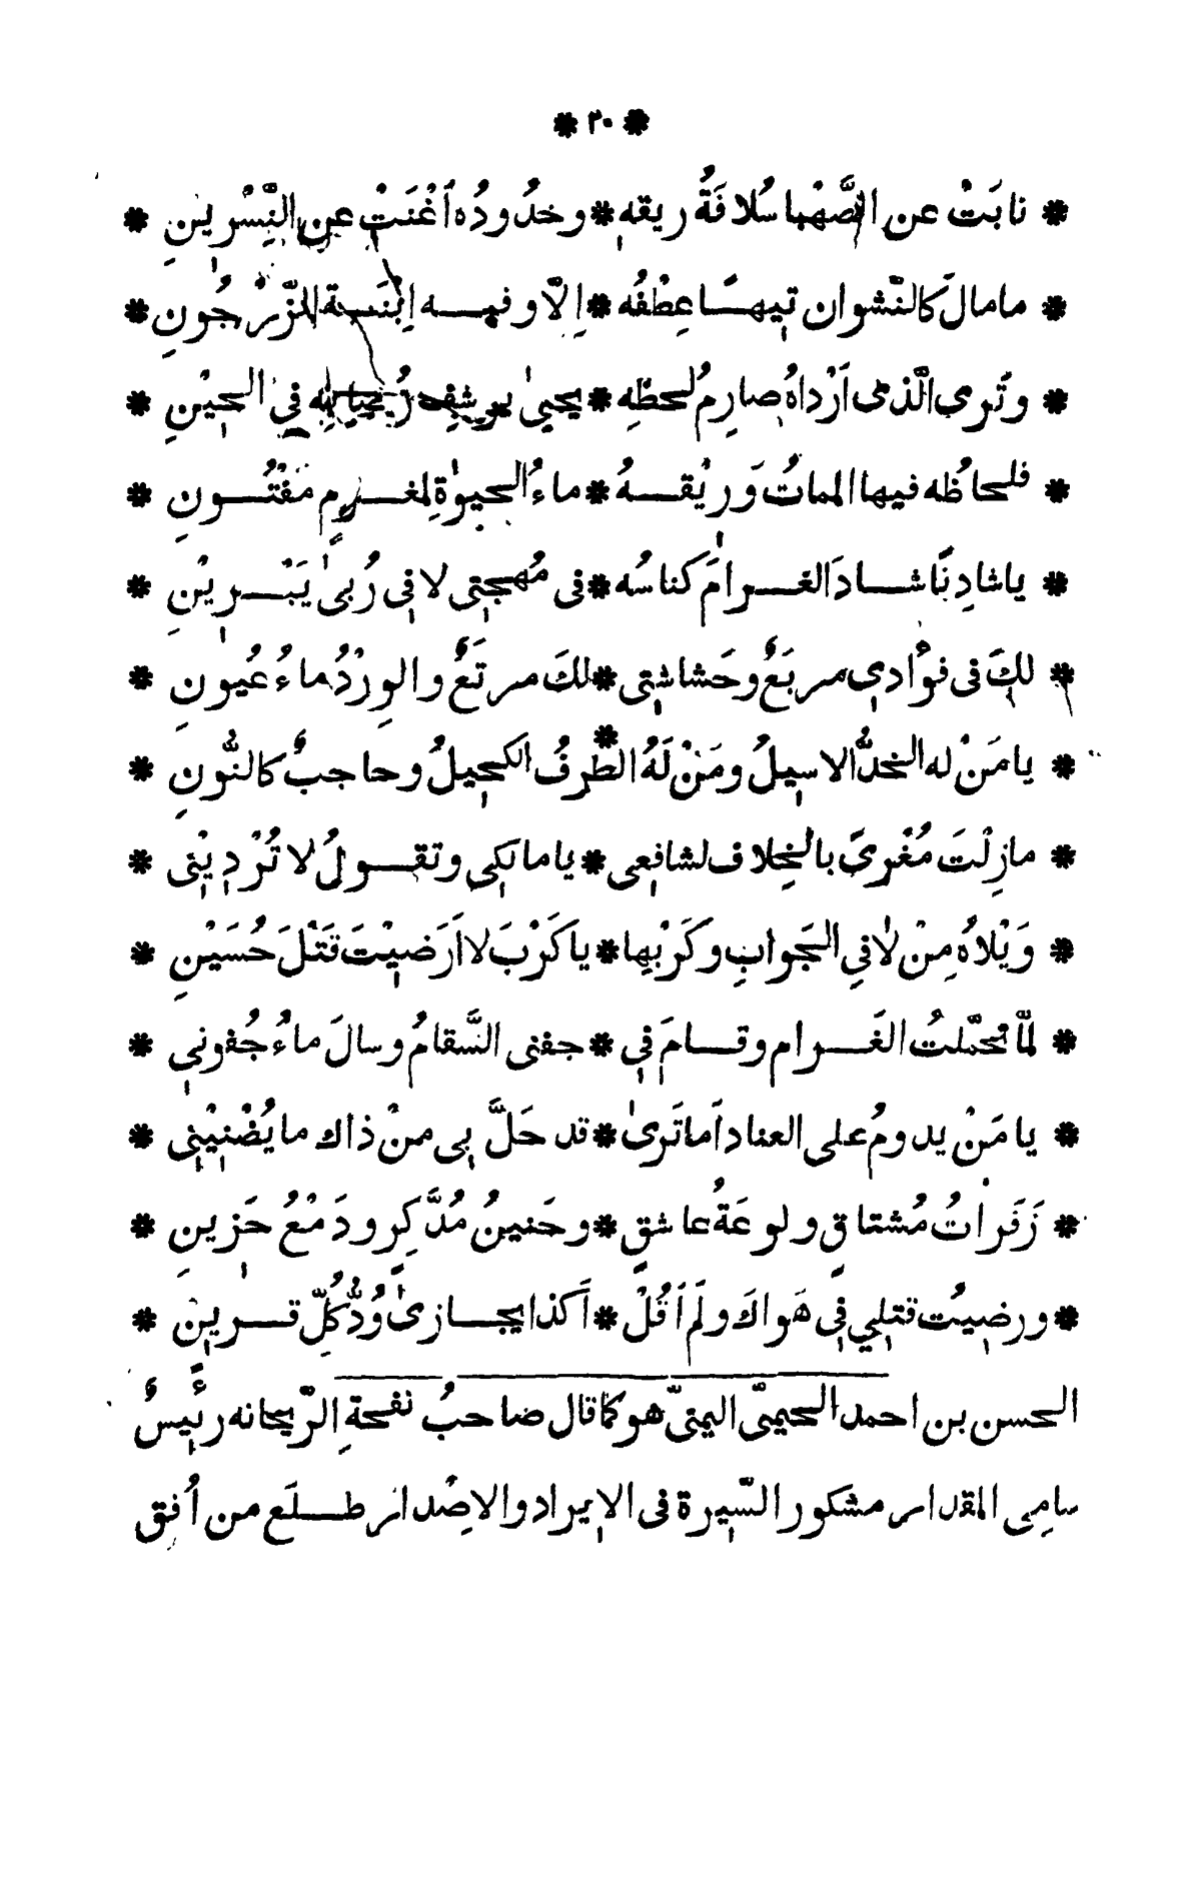 * ٣٠ *
* نابَتْ عن الصَّهْبا سُلافَةُ ريقهِ * وخدُودُه أغْنَتْ عنِ النِّسْرِينِ *
* مامالَ كالنّشوان تيهًا عِطْفُه * اِلّا وفيه اِبْنَة الزَّرَجُونِ *
* وتَرى الّذى اَرْداهُ صارِمُ لحظِهِ * يحيىٰ في الحِيْنِ *
* فلحاظُه فيها المماتُ وَرِيْقهُ * ماءُ الحيوٰةِ لمغرمٍ مَفْتُونِ *
* ياشادِنًا شادَ الغرامَ كناسُه * فى مُهجتى لا في رُبىٰ يَبْرِيْنِ *
* لكَ فى فؤادي مربَعٌ وحَشاشتى * لكَ مرتَعٌ والوِرْدُ ماءُ عُيونِ *
* يامَنْ له الخدُّ الاسيلُ ومَنْ لَهُ * الطَّرفُ الكحيلُ وحاجبٌ كالنُّونِ *
* مازِلْتَ مُغْرىً بالخِلاف لشافعى * يا مالكى وتقولُ لا تُرْدِيْنى *
* وَيْلاهُ مِنْ لافي الجَوابِ وكَرْبِها * ياكَرْبَ لا اَرَضيْتَ قَتْلَ حُسَيْنِ *
* لمّا تحمّلتُ الغَرام وقامَ في * جفنى السَّقامُ وسالَ ماءُ جُفوني *
* يا مَنْ يدومُ على العناد اَما تَرىٰ * قد حَلَّ بى منْ ذاك ما يُضْنِيْنى *
* زَفَراتُ مُشتاقٍ ولوعَةُ عاشقٍ * وحَنينُ مُدَّكِرٍ ودَمْعُ حَزِينِ *
* ورضيْت قتلي في هَواكَ ولَم اَقُلْ * اَكذا يجازىٰ وُدُّ كُلِّ قرينِ *
الحسن بن احمد الحيمىّ اليمنىّ هو كما قال صاحبُ نفحةِ الرّيحانه رئيسٌ
سامِى المقدار مشكور السّيرة فى الايراد والاِصْدار طلَع من اُفق